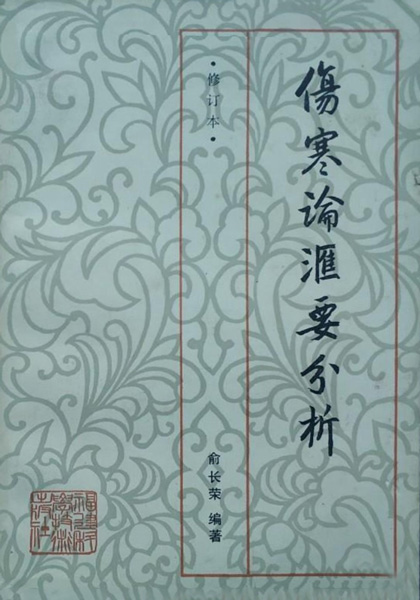 傷寒论滙要分析
·修订本·
俞长荣 编著